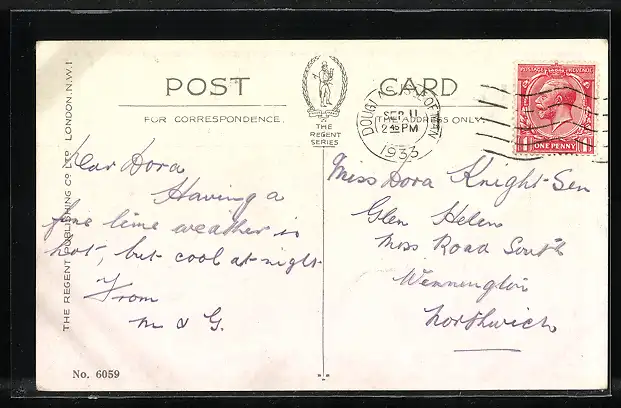 POST CARD
FOR CORRESPONDENCE.
THE ADDRESS ONLY.
THE
REGENT
SERIES
DOUGLAS ISLE OF MAN
SEP 11
2 45 PM
1933
POSTAGE REVENUE
ONE PENNY
THE REGENT PUBLISHING Co LTD LONDON.N.W.1
Dear Dora
Having a
fine time weather is
hot, but cool at night
From
M & G.
Miss Dora Knight-Sen
Glen Helen
Moss Road South
Wennington
Northwich
No. 6059